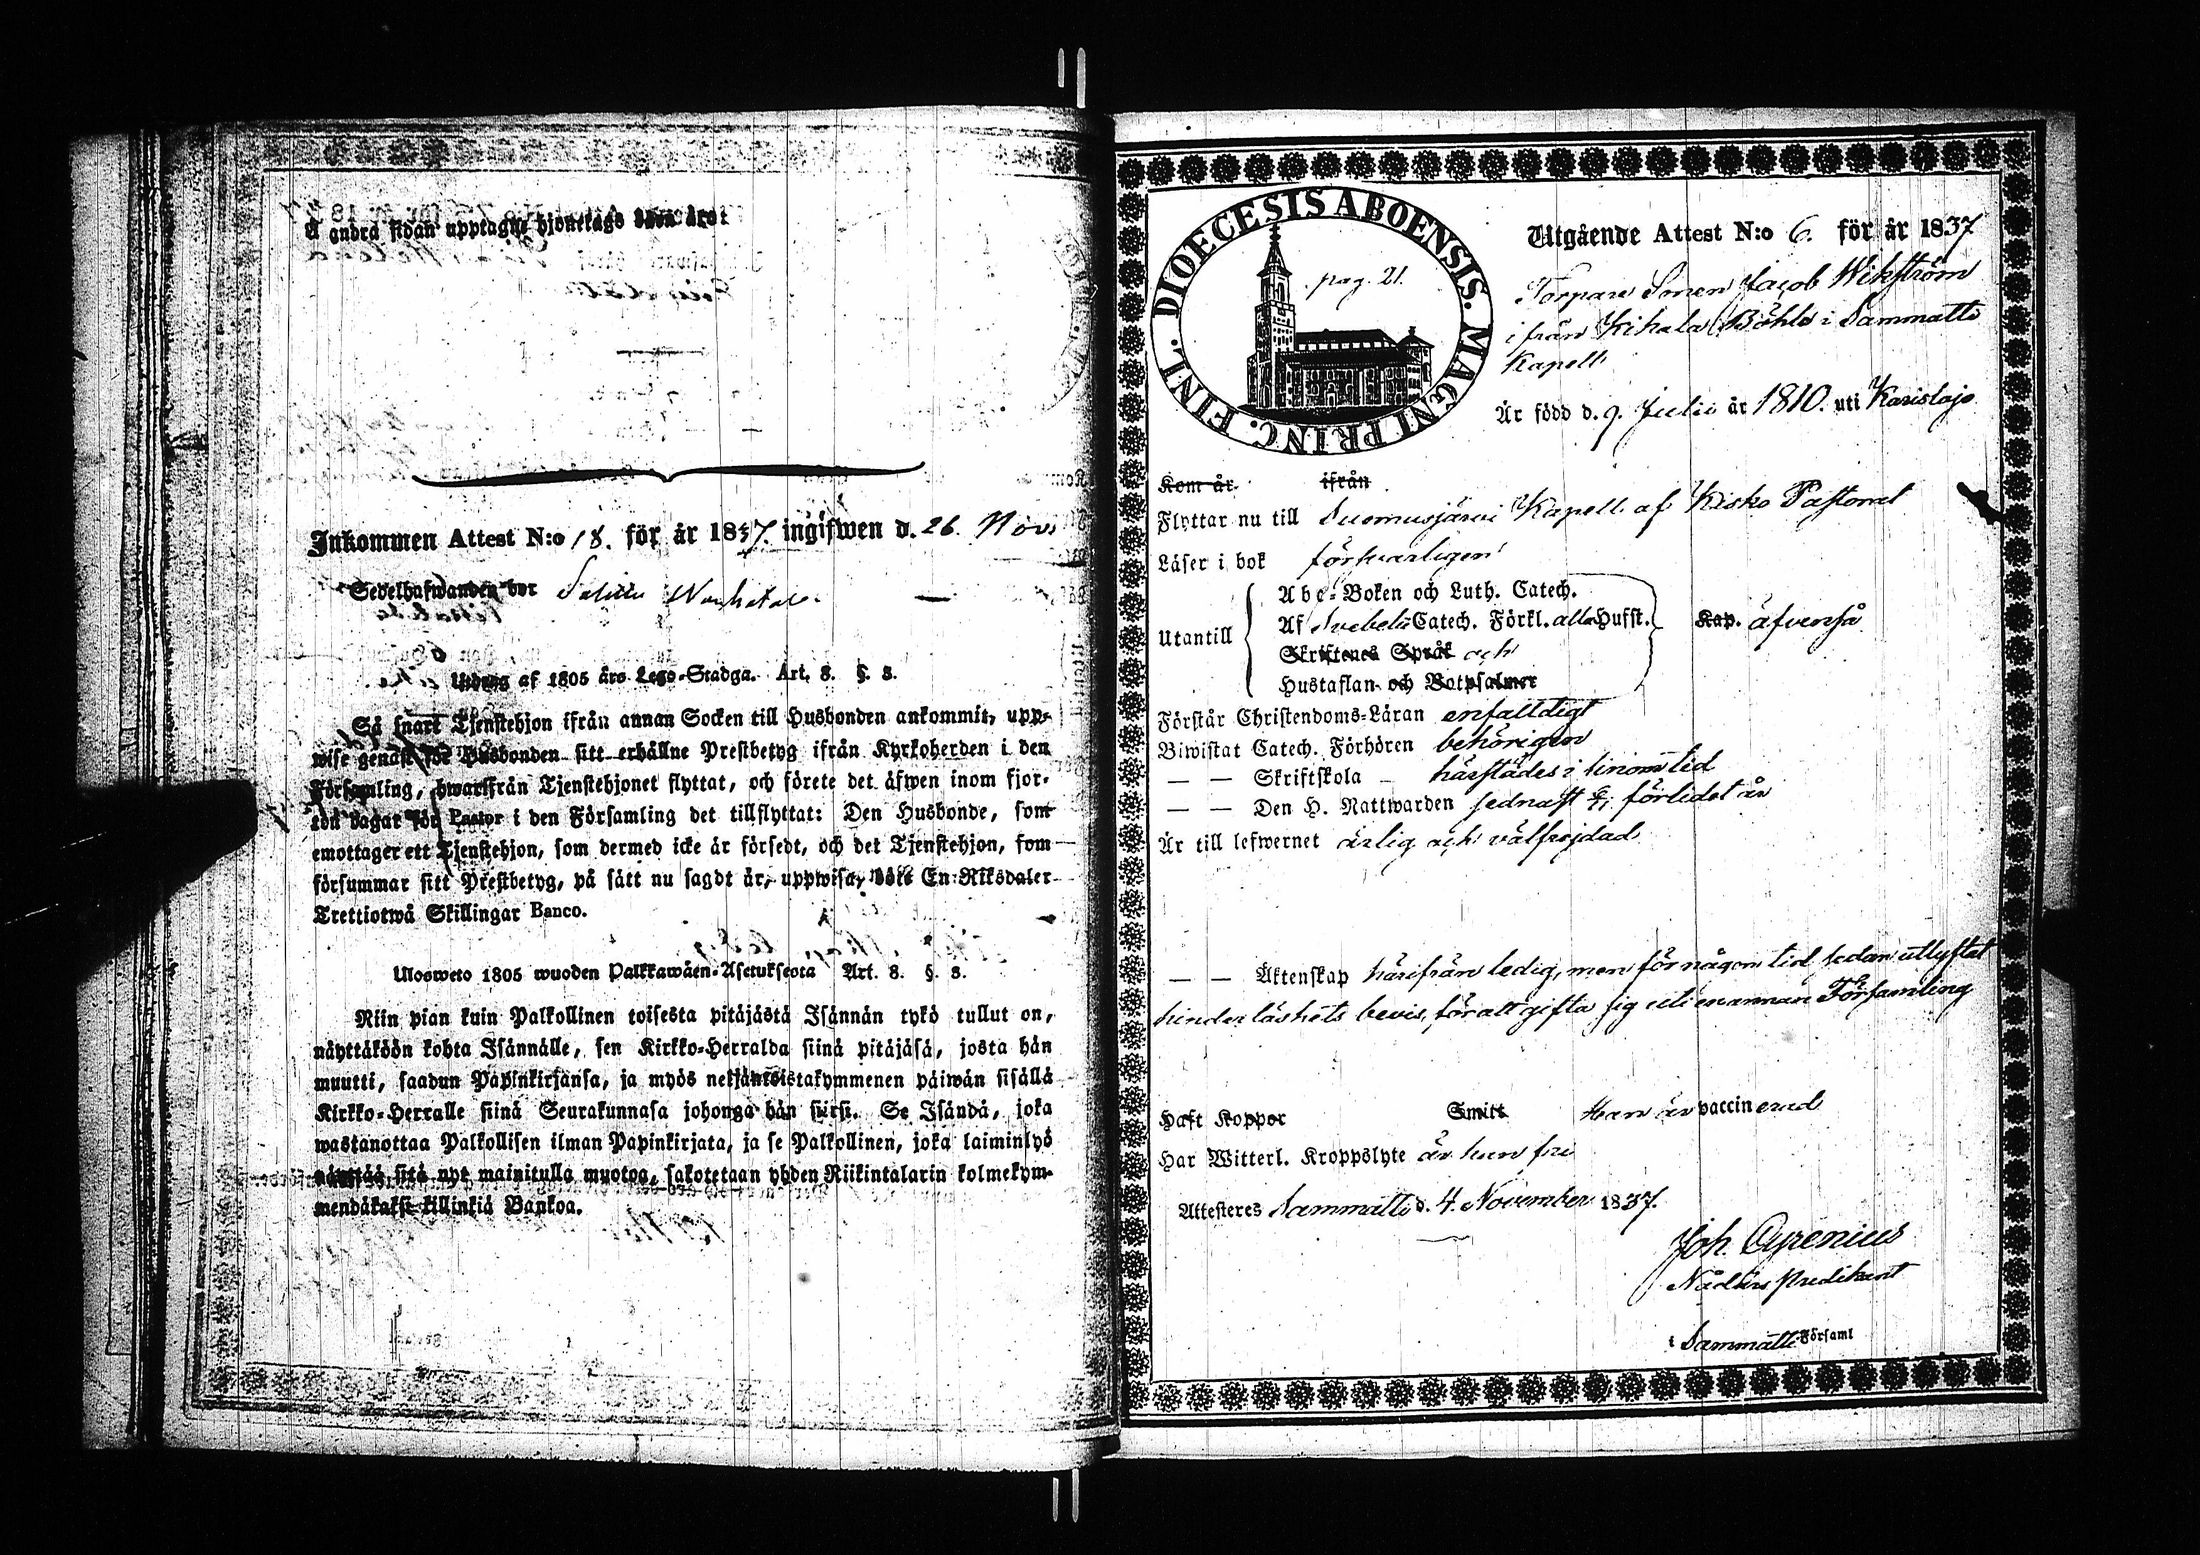 Å andra sidan upptagne hjonelags
Inkommen Attest N:o 18. för år 1837. ingifwen d. 26. Nov.
Sedelhafwanden bor
Utdrag af 1805 års Lego-Stadga. Art. 8. §. 8.
Så snart Tjenstehjon ifrån annan Socken till Husbonden ankommit, upp-
wise genast för Husbonden sitt erhållne Prestbetyg ifrån Kyrkoherden i den
Församling, hwarifrån Tjenstehjonet flyttat, och förete det äfwen inom fjor-
ton dagar för Pastor i den Församling det tillflyttat: Den Husbonde, som
emottager ett Tjenstehjon, som dermed icke är försedt, och det Tjenstehjon, som
försummar sitt Prestbetyg, på sätt nu sagdt är, uppwisa, böte En Riksdaler
Trettiotwå Skillingar Banco.
Ulosweto 1805 wuoden Palkkawäen-Asetuksesta Art. 8. §. 8.
Niin pian kuin Palkollinen toisesta pitäjästä Isännän tykö tullut on,
näyttäköön kohta Isännälle, sen Kirkko-Herralda siinä pitäjäsä, josta hän
muutti, saadun Papinkirjansa, ja myös neljäntoistakymmenen päiwän sisällä
Kirkko-Herralle siinä Seurakunnasa johonga hän siirsi. Se Isändä, joka
wastanottaa Palkollisen ilman Papinkirjata, ja se Palkollinen, joka laiminlyö
näyttää sitä nyt mainitulla muotoa, sakotetaan yhden Riikintalarin kolmekym-
mendäkaksi killinkiä Bankoa.
DIOECESIS ABOENSIS. MAGNI PRINC. FINL.
pag. 21.
Utgående Attest N:o 6. för år 1837
Torpare Sonen Jacob Wikström
ifrån Kihala Böhle i Sammatti
Kapell
Är född d. 9. Julii år 1810. uti Karislojo
Kom år ifrån
Flyttar nu till Suomusjärvi Kapell af Kisko Pastorat
Läser i bok försvarligen
Utantill
Abc-Boken och Luth. Catech.
Af Svebelii Catech. Förkl. alla Hufst.
Skriftenes Språk och
Hustaflan och Botpsalmer
Kap. äfvenså
Förstår Christendoms-Läran enfalldigt
Biwistat Catech. Förhören behörigen
— — Skriftskola härstädes i sinom tid
— — Den H. Nattwarden sednast förlidet år
Är till lefwernet ärlig och välfrejdad
— — Äktenskap härifrån ledig, men för någon tid sedan utlyftat
hinderlöshets bevis, för att gifta sig uti en annan Församling
Haft Koppor Smitt Han är vaccinerad
Har Witterl. Kroppslyte är han fri
Attesteres Sammatti d. 4. November 1837.
Joh. Cyrenius
Nådårs predikant
i Sammatti Församl